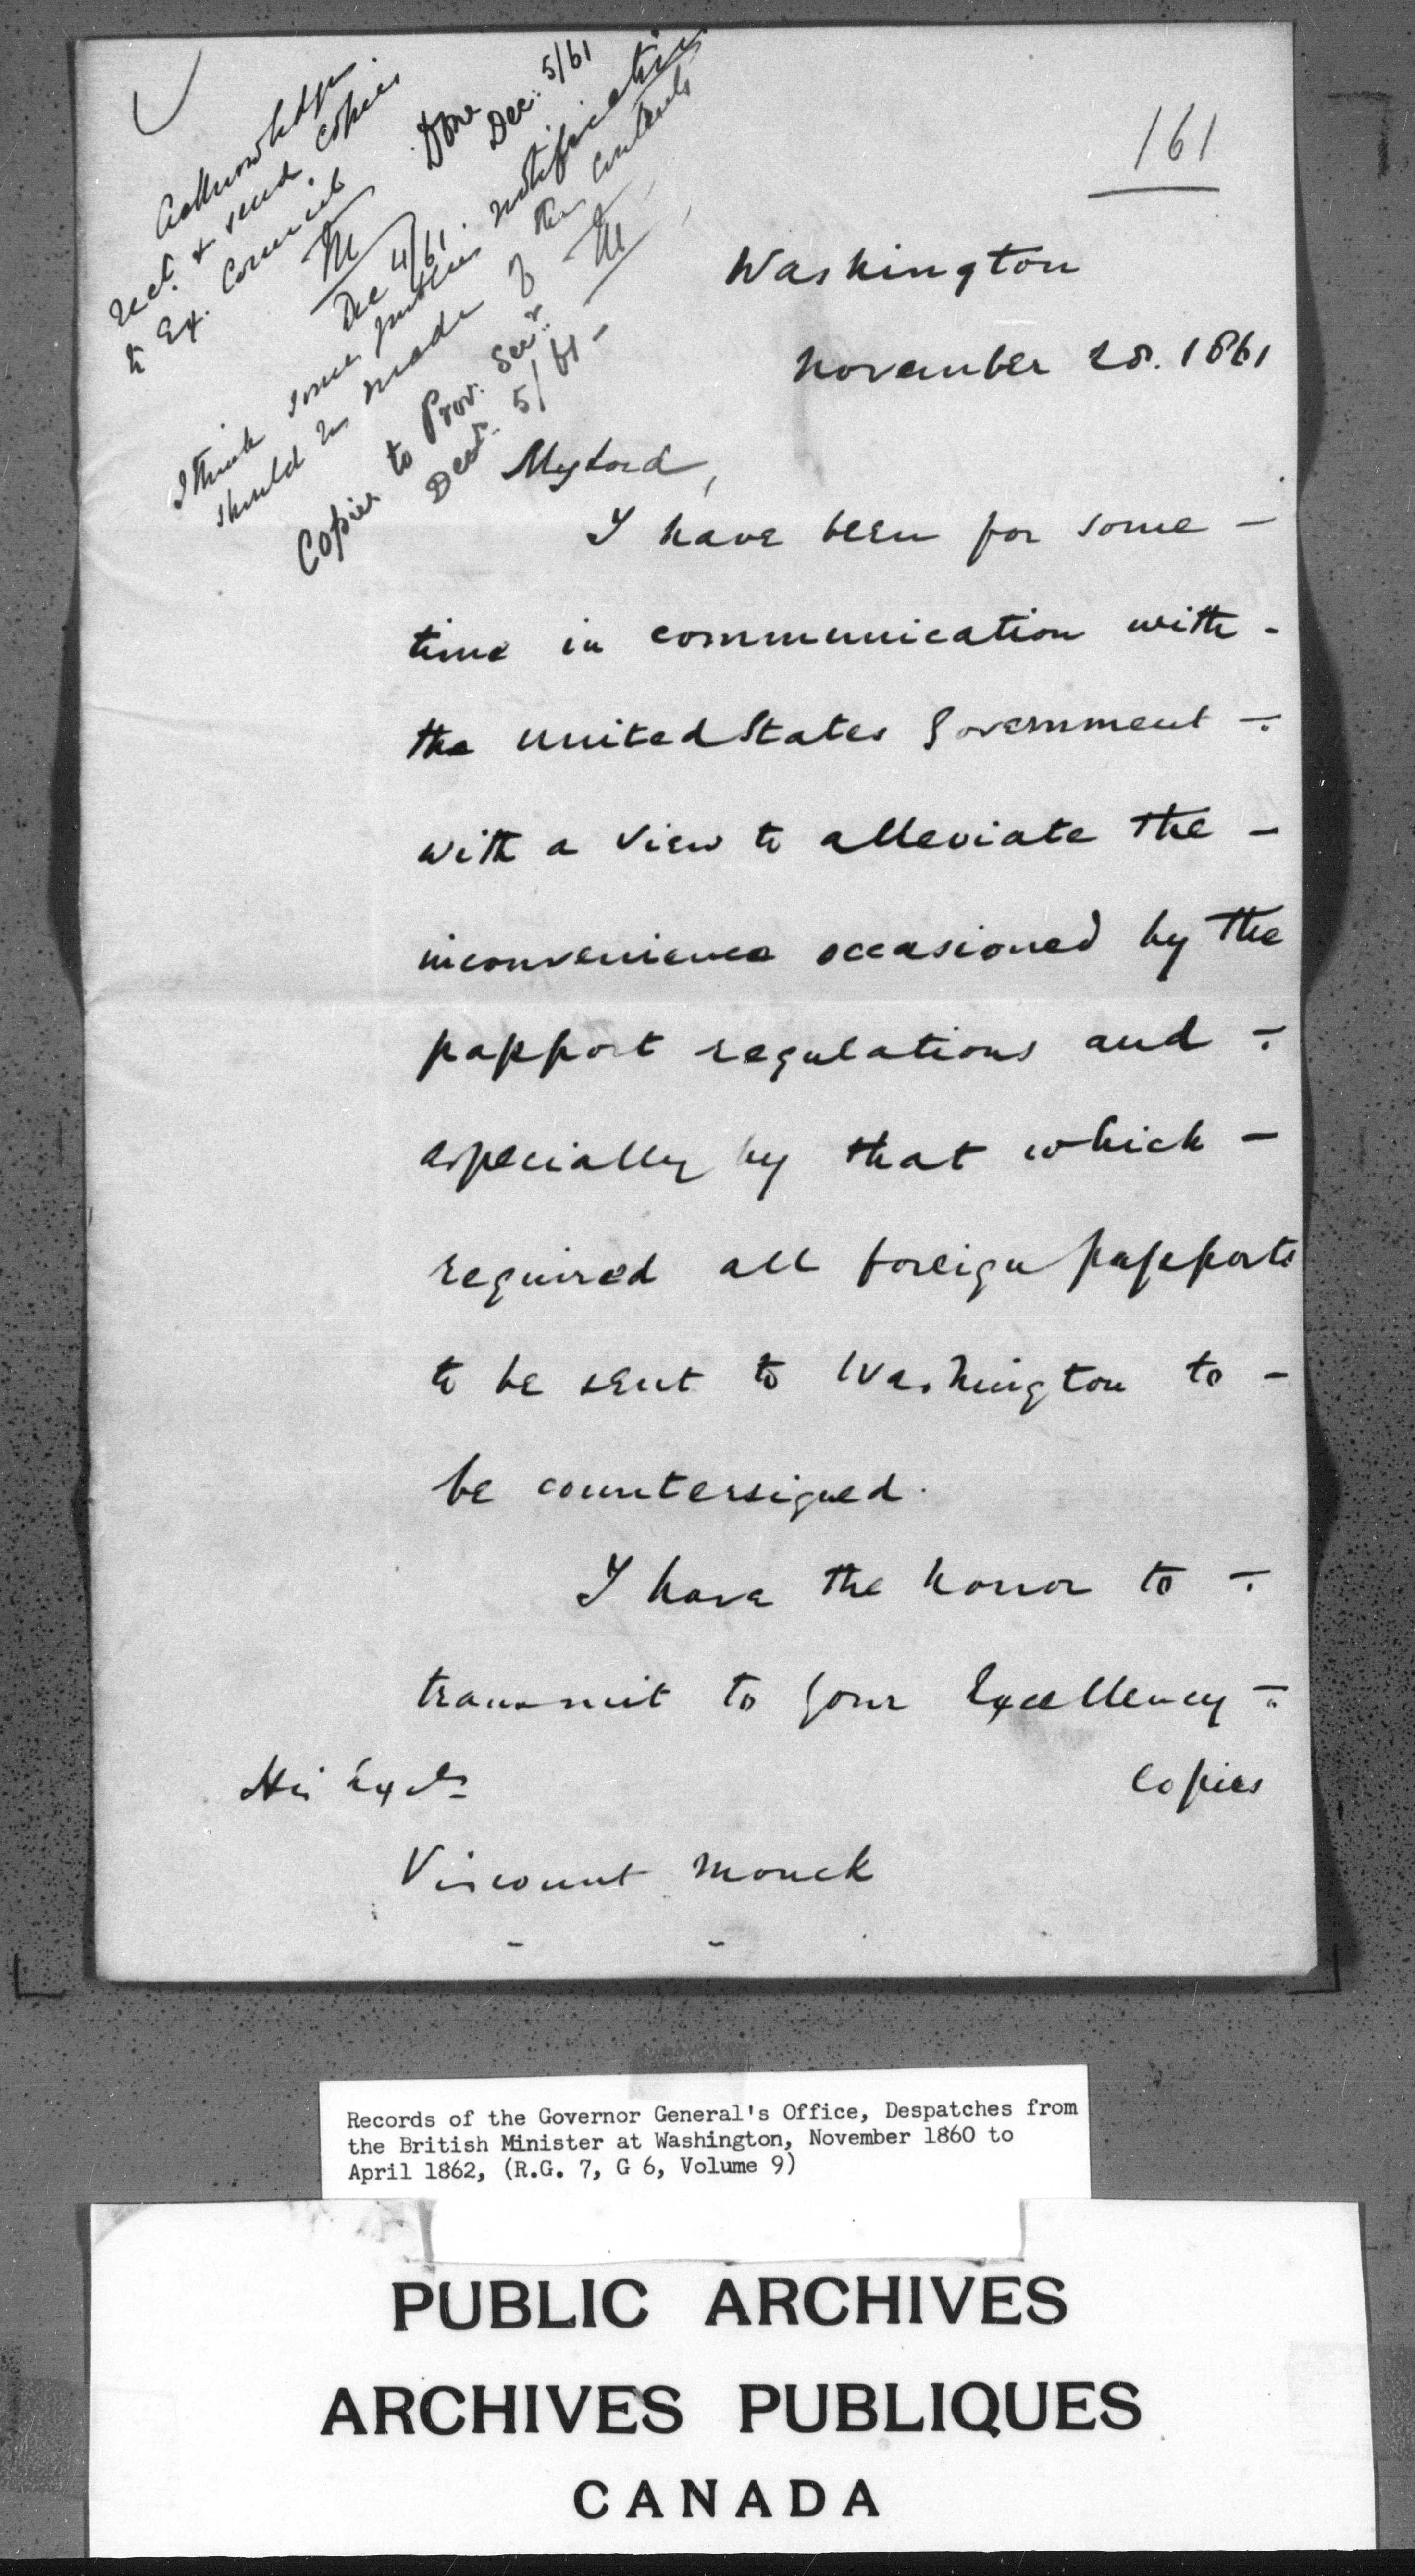 Acknowledge
rect. & send copies
to Ex. Council
M
Dec 4/61.
Done
Dec. 5/61
I think some public notification
should be made of the contents
M
Copies to Prov. Secr.
Decr. 5/61 -
161
Washington
November 28. 1861
My Lord,
I have been for some -
time in communication with -
the United States Government -
with a view to alleviate the -
inconvenience occasioned by the
passport regulations and -
especially by that which -
required all foreign passports
to be sent to Washington to -
be countersigned.
I have the honor to -
transmit to Your Excellency -
copies
His Excy
Viscount Monck
Records of the Governor General's Office, Despatches from
the British Minister at Washington, November 1860 to
April 1862, (R.G. 7, G 6, Volume 9)
PUBLIC ARCHIVES
ARCHIVES PUBLIQUES
CANADA